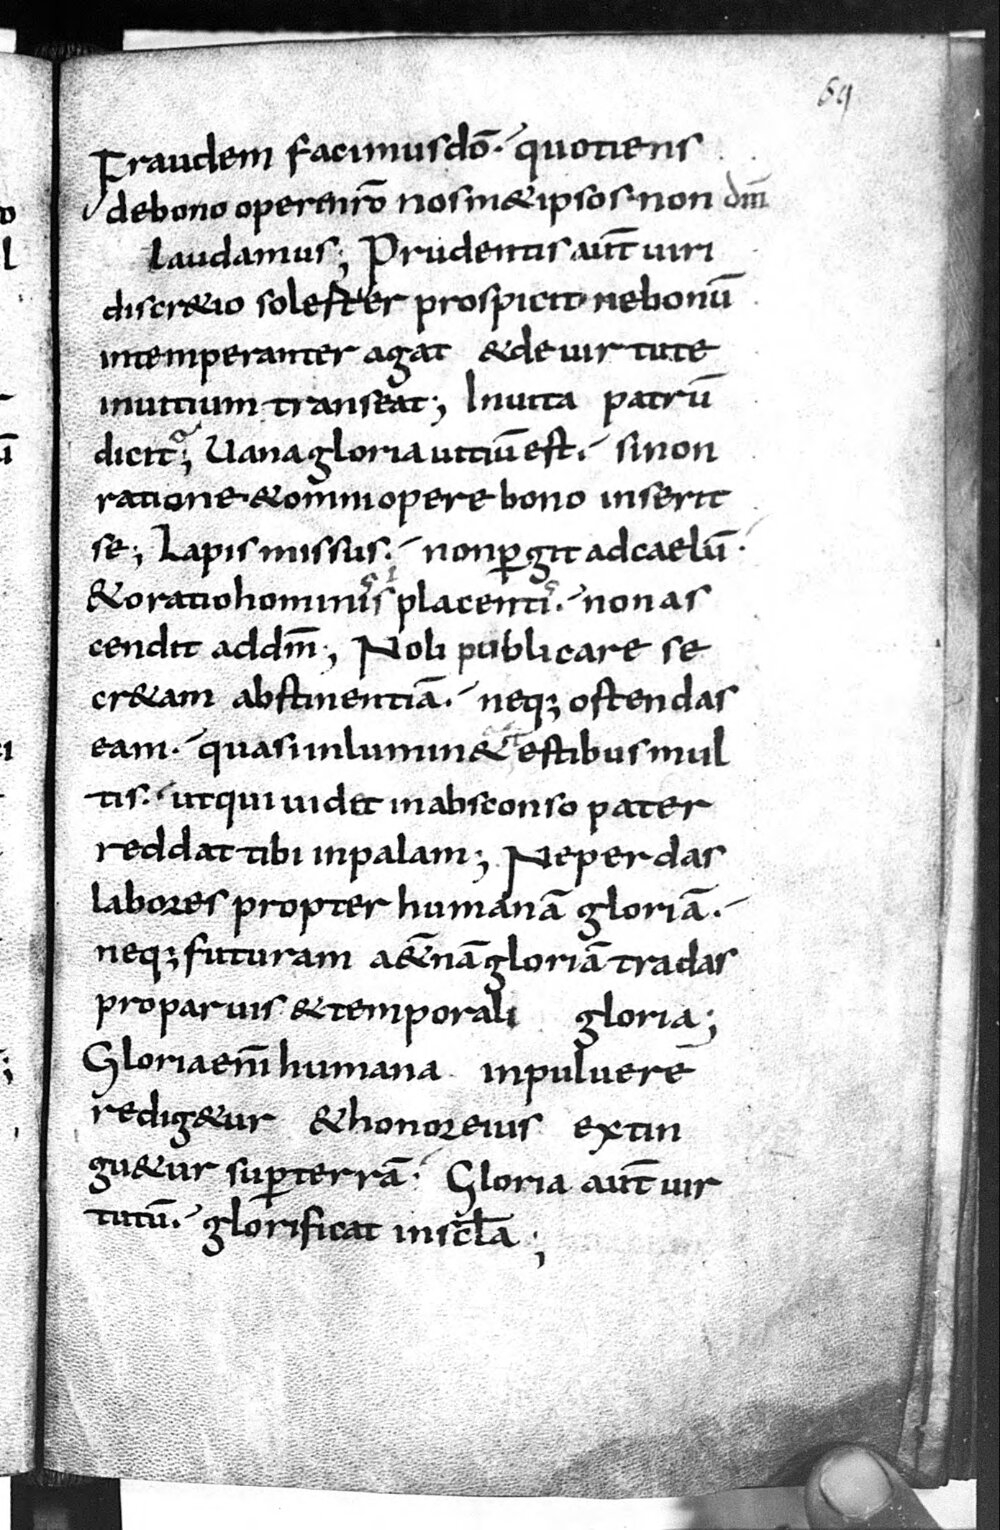 69
Fraudem facimus dō· quotiens
de bono opere nr̄o nosm&ipsos· non dm̄
laudamus; Prudentis aut̄ uiri
discr&io solester prospicit· ne bonū
intemperanter agat &de uirtute
in uitium transeat; In uita patrū
dicit; Uana gloria uitiū est· si non
ratione· &omni opere bono inserit
se; Lapis missus· non ꝑgit ad caelū·
&oratio hominis placenti· non as
cendit ad dm̄; Noli publicare se
cr&am abstinentiā· neq; ostendas
eam· quasi in lumin& estibus mul
tis· ut qui uidet in absconso pater
reddat tibi in palam; Ne perdas
labores propter humanā gloriā·
neq; futuram a&̄nā gloriā tradas
pro paruis &temporali gloria;
Gloria eni̅ humana in puluerē
redig&ur &honor eius extin
gu&ur suꝑ terrā· Gloria aut̄ uir
tutū· glorificat in scl̄a;